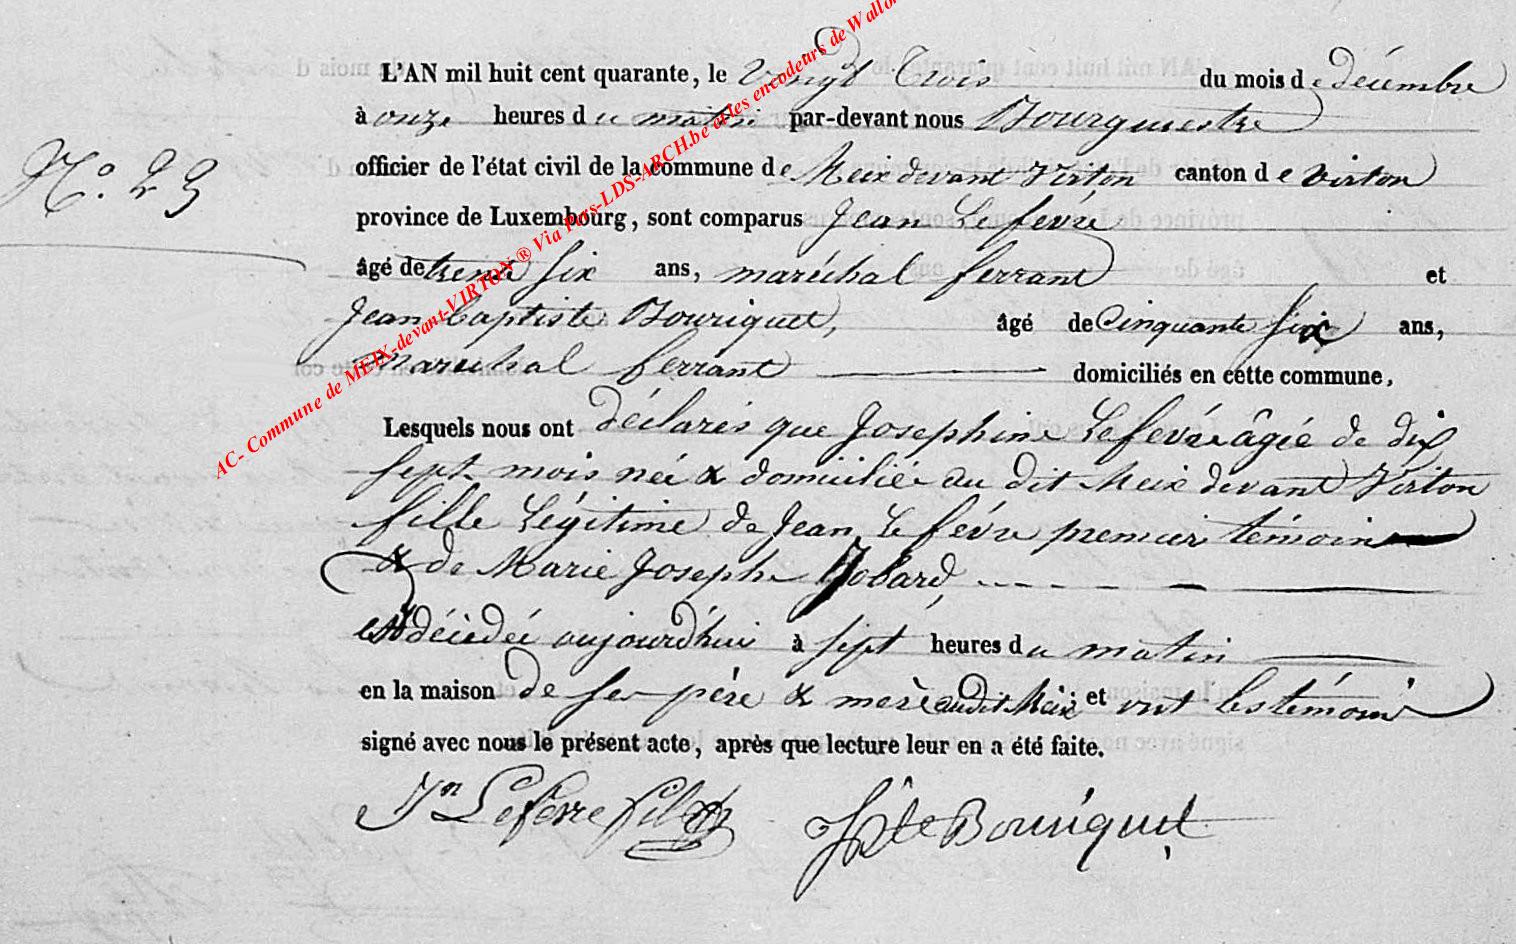 L'AN mil huit cent quarante, le vingt trois du mois de décembre
à onze heures du matin par-devant nous Bourgmestre
N.o 23
officier de l'état civil de la commune de Meix devant Virton canton de Virton
province de Luxembourg, sont comparus Jean Lefévre
âgé de trente six ans, maréchal ferrant et
Jean baptiste Bouriquet, âgé de Cinquante six ans,
maréchal ferrant domiciliés en cette commune,
Lesquels nous ont déclarés que Josephine Lefévre âgée de dix
sept mois née & domiciliée au dit Meix devant Virton
fille Légitime de Jean Lefévre premier témoin
& de Marie Josephe Jobard,
est décédée aujourd'hui à sept heures du matin
en la maison de ses père & mère audit Meix et ont les témoins
signé avec nous le présent acte, après que lecture leur en a été faite.
Jn Lefevre fils JBte Bouriquet
AC- Commune de MEIX-devant-VIRTON ® Via Pers-LDS-ARCH.be et les encodeurs de Wallon